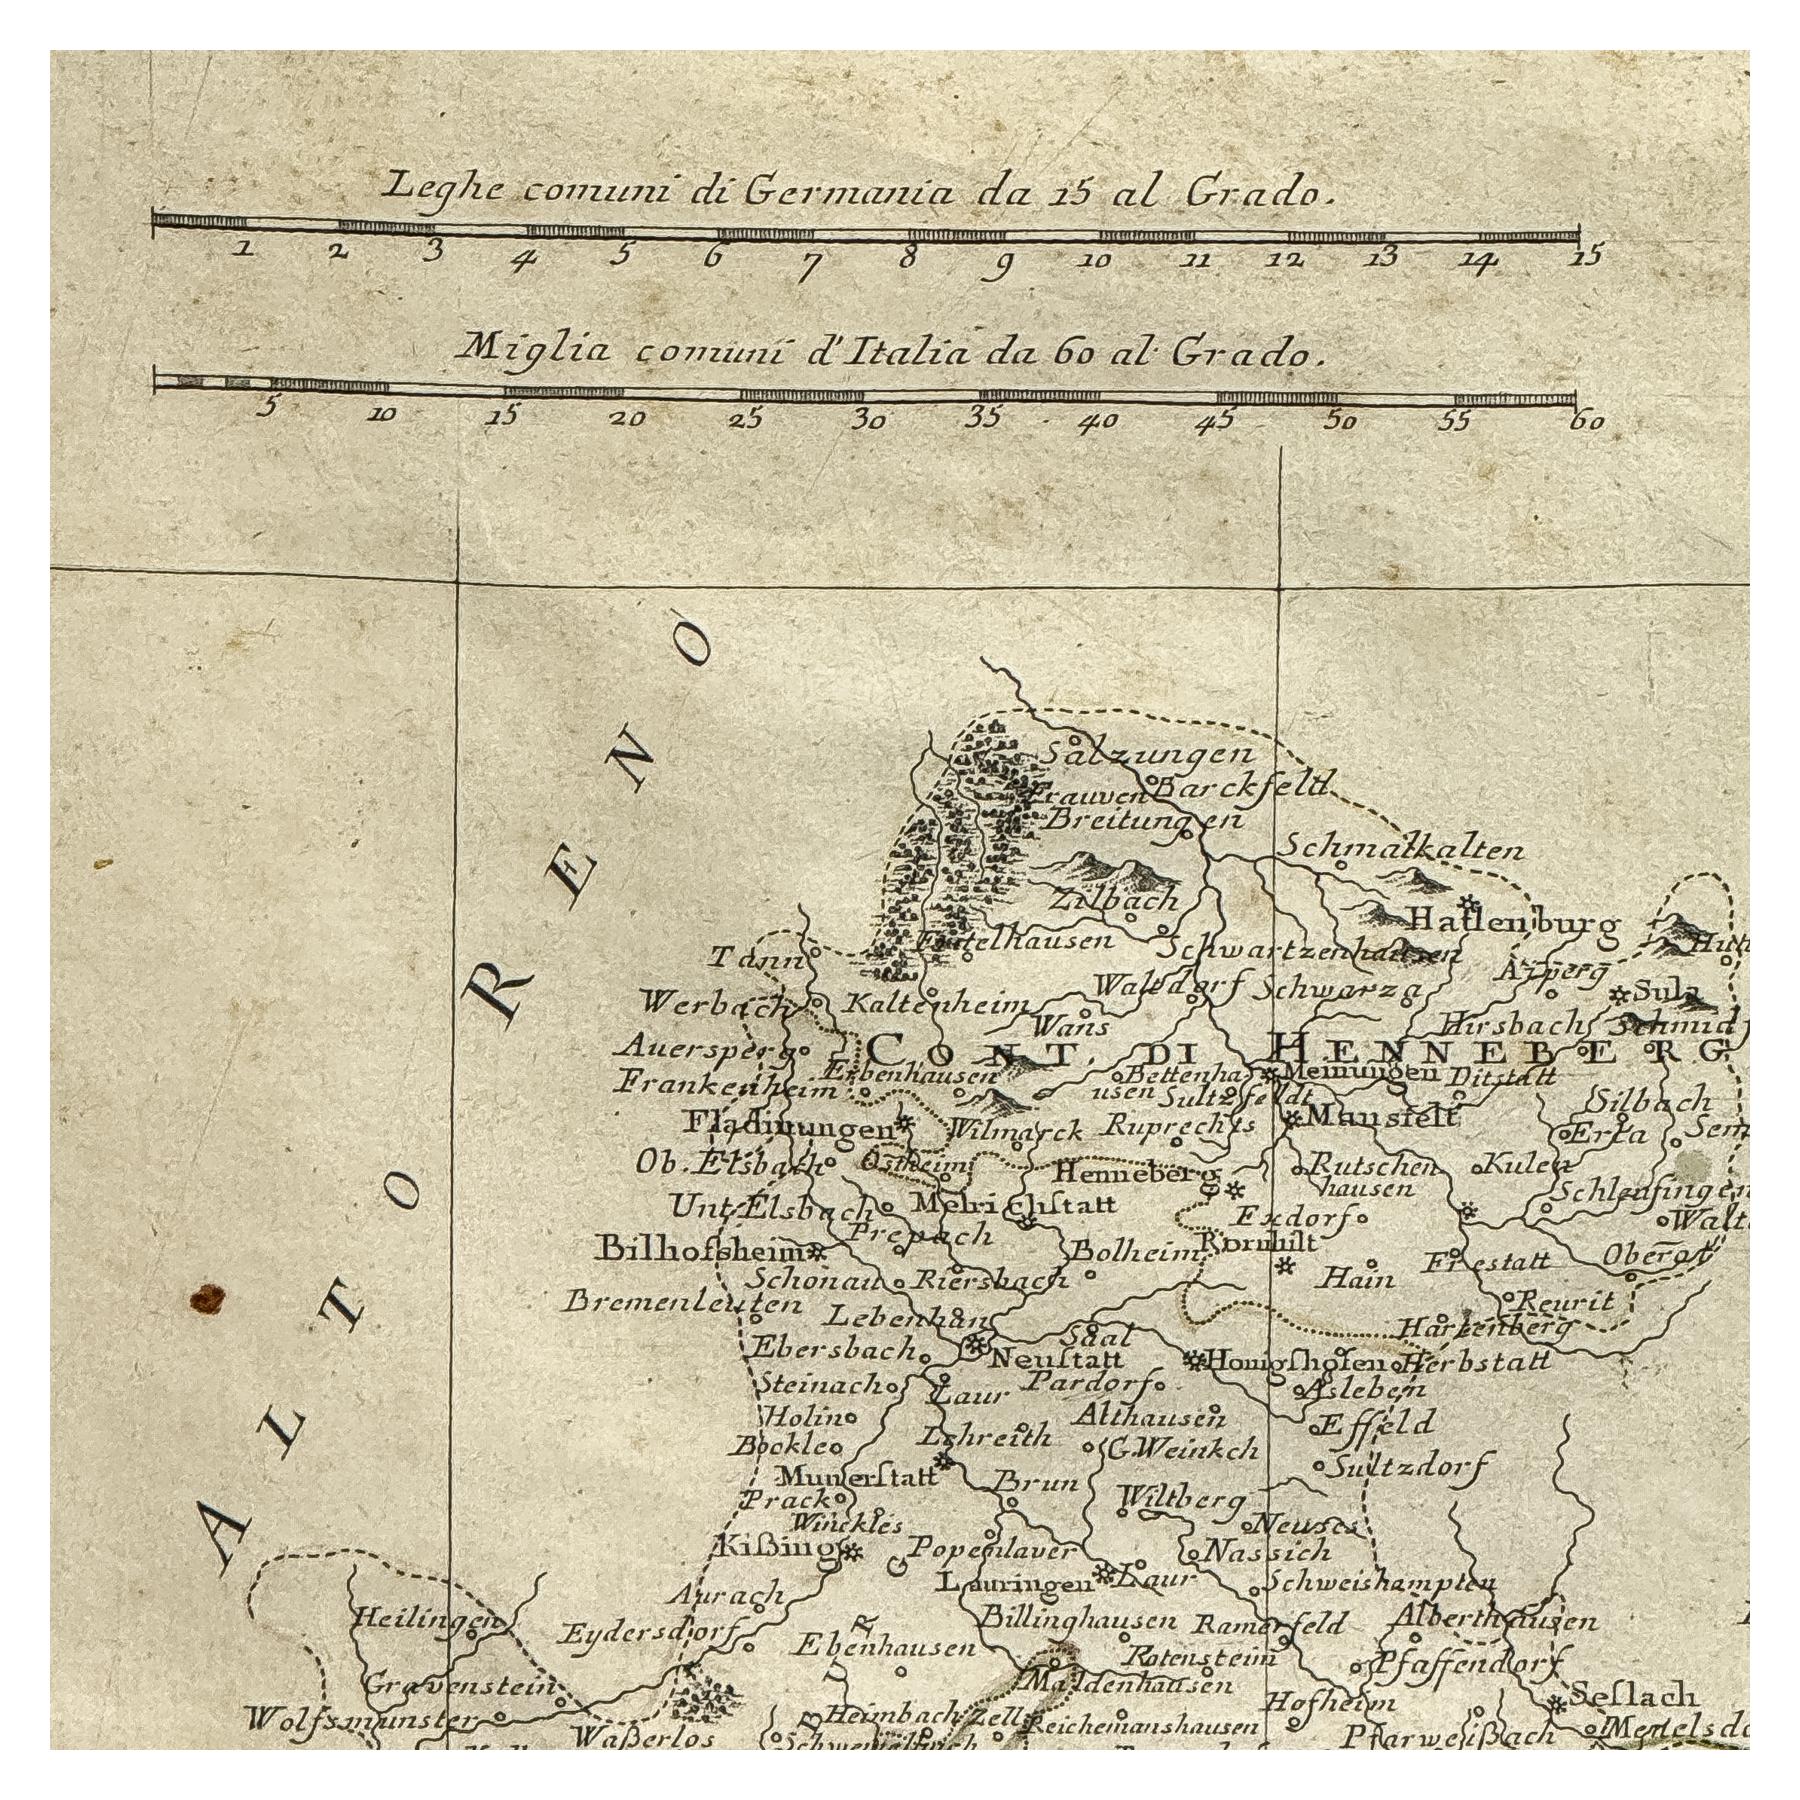 Leghe comuni di Germania da 15 al Grado.
1 2 3 4 5 6 7 8 9 10 11 12 13 14 15
Miglia comuni d'Italia da 60 al Grado.
5 10 15 20 25 30 35 40 45 50 55 60
ALTO RENO
Salzungen
Frauven Barckfeld
Breitungen
Schmalkalten
Zilbach
Hallenburg
Schwartzenhausen
Tann
Asperg
Waltdorf Schwarza
Sula
Werbach
Kaltenheim
Wans
Hirsbach
CONT. DI HENNEBERG
Auersperg
Erbenhausen
Bettenha
usen
Meinungen
Ditstatt
Frankenheim
Sultzfeldt
Silbach
Fladinungen
Wilmarck
Ruprechts
Mansfelt
Erta
Ob. Elsbach
Ostheim
Henneberg
Rutschen
hausen
Kulen
Schleusingen
Unt. Elsbach
Melrichstatt
Exdorf
Prepach
Romhilt
Bilhofsheim
Bolheim
Hain
Frestatt
Schonau
Riersbach
Bremenleuten
Reurit
Lebenhan
Saal
Harkenberg
Ebersbach
Neustatt
Honigshofen
Herbstatt
Steinach
Laur
Pardorf
Asleben
Holin
Althausen
Effeld
Bockle
Lehreith
G. Weinkch
Sultzdorf
Munerstatt
Brun
Wiltberg
Prack
Winckles
Neuses
Kißing
Popenlaver
Nassich
Lauringen
Laur
Schweishampten
Aurach
Heilingen
Eydersdorf
Billinghausen
Ramerfeld
Alberthausen
Ebenhausen
Rotenstein
Pfaffendorf
Gravenstein
Maldenhausen
Hofheim
Seslach
Wolfsmunster
Waßerlos
Heimbach
Zell
Reichemanshausen
Pfarweißach